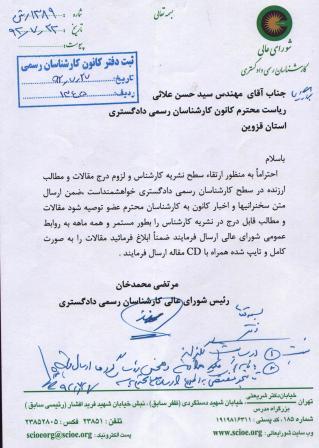 بسمه تعالی
شماره : ۱۳۸۹/رش
تاریخ : ۹۲/۷/۲۲
پیوست:
شورای عالی
کارشناسان رسمی دادگستری
ثبت دفتر کانون کارشناسان رسمی
تاریخ: ۹۲/۷/۲۷
ردیف:
جناب آقای مهندس سید حسن علائی
ریاست محترم کانون کارشناسان رسمی دادگستری
استان قزوین
باسلام
احتراماً به منظور ارتقاء سطح نشریه کارشناس و لزوم درج مقالات و مطالب
ارزنده در سطح کارشناسان رسمی دادگستری خواهشمنداست ،ضمن ارسال
متن سخنرانیها و اخبار کانون به کارشناسان محترم عضو توصیه شود مقالات
و مطالب قابل درج در نشریه کارشناس را بطور مستمر و همه ماهه به روابط
عمومی شورای عالی ارسال فرمایند ضمناً ابلاغ فرمائید مقالات را به صورت
کامل و تایپ شده همراه با CD مقاله ارسال فرمایند .
مرتضی محمدخان
رئیس شورای عالی کارشناسان رسمی دادگستری
خیابان دکتر شریعتی
تهران خیابان شهید دستگردی (ظفر سابق) ، نبش خیابان شهید فرید افشار (رئیسی سابق)
بزرگراه مدرس
شماره ۱۸۵، کد پستی : ۱۹۱۹۸۱۶۳۱۱
تلفن : ۲۳۸۵۱ فکس : ۲۳۸۵۲۸۰۵
وب سایت شورایعالی : www.scioe.org
پست الکترونیک: scioeorg@scioe.org